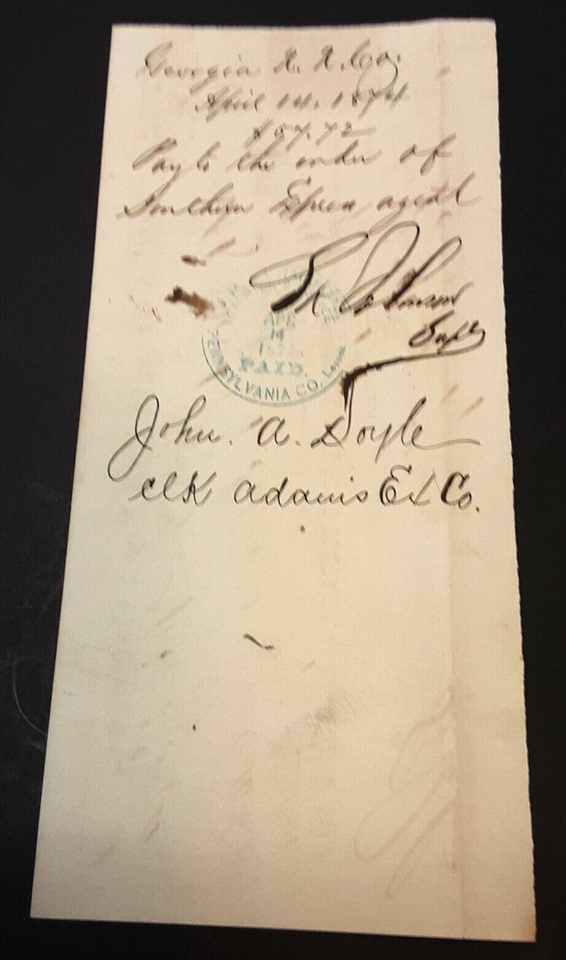 Georgia R. R. Co.
April 14. 1874
$57.72
Pay to the order of
Southern Express agent
S K Johnson
Supt
APR
14
PAID.
PENNSYLVANIA CO. Lessee
John. A. Doyle
clk Adams Ex Co.